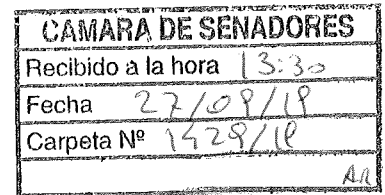 CAMARA DE SENADORES
Recibido a la hora 13:30
Fecha 27/09/19
Carpeta Nº 1429/19